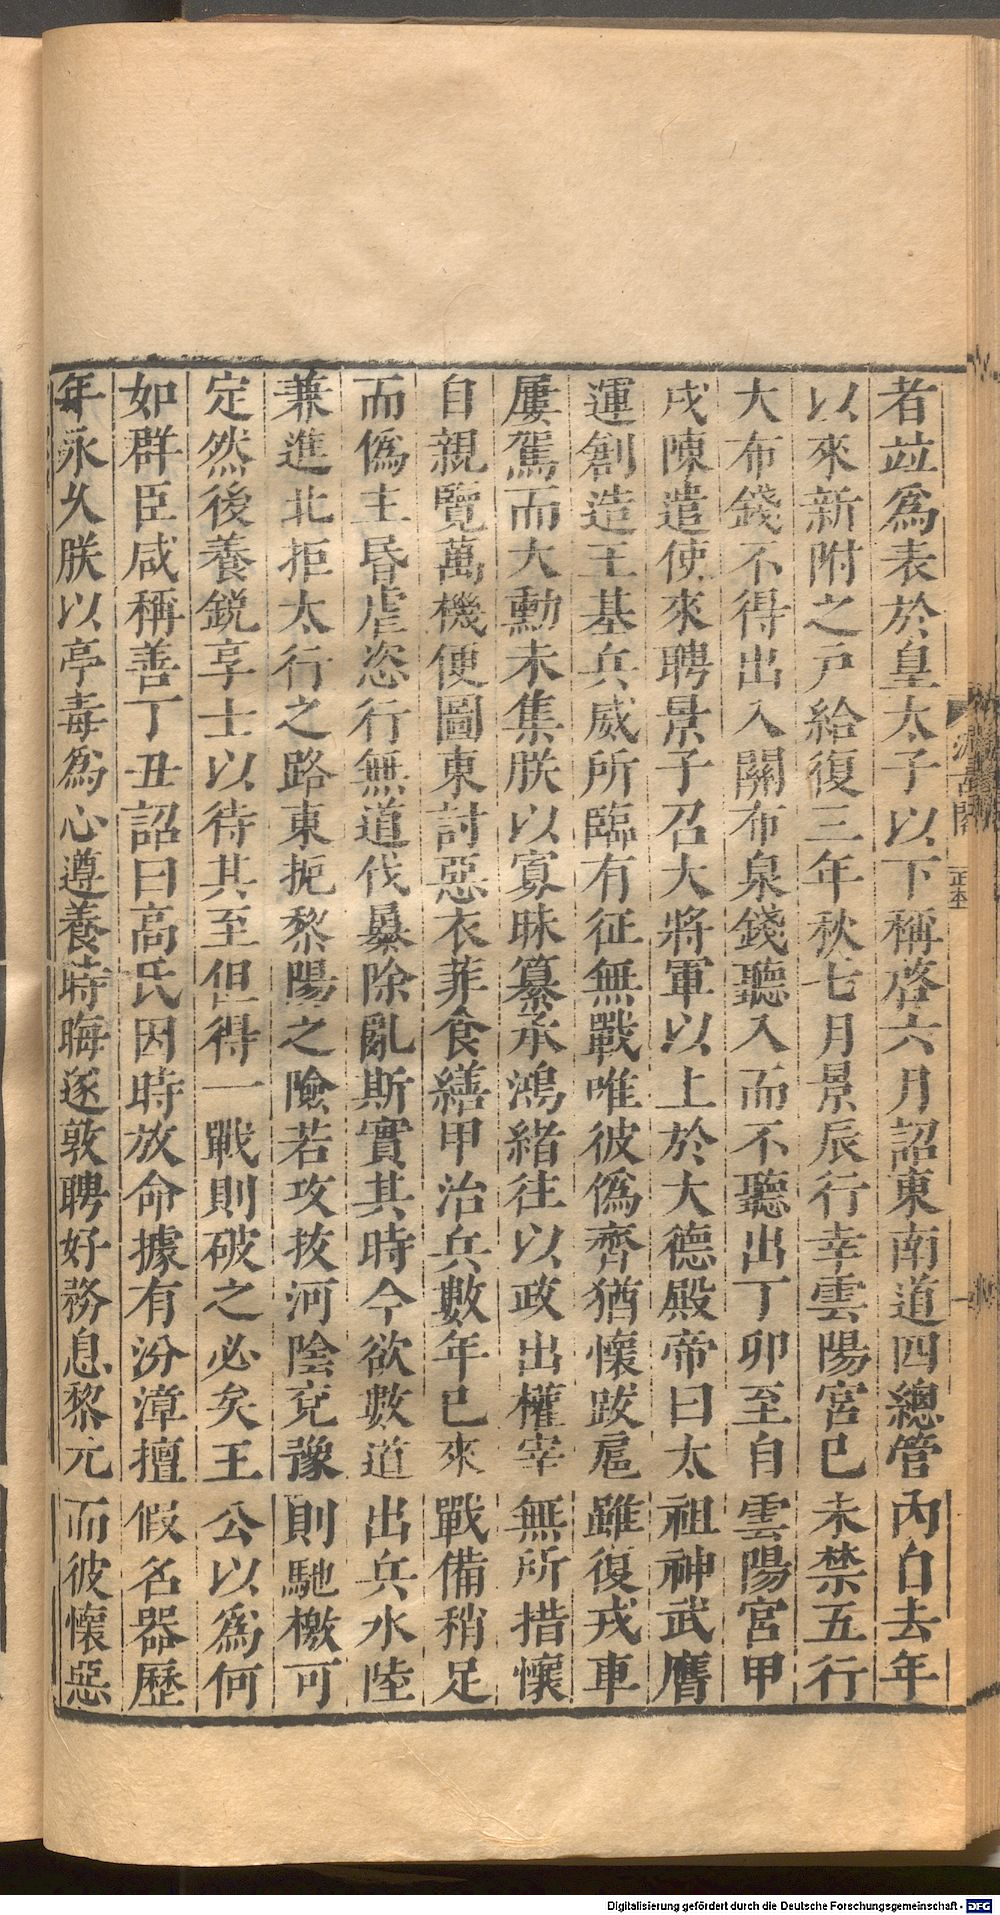 者竝爲表於皇太子以下稱啓六月詔東南道四總管內自去年
以來新附之戸給復三年秋七月景辰行幸雲陽宮己未禁五行
大布錢不得出入關布泉錢聽入而不聽出丁卯至自雲陽宮甲
戌陳遣使來聘景子召大將軍以上於大德殿帝曰太祖神武膺
運創造王基兵威所臨有征無戰唯彼僞齊猶懷跋扈雖復戎車
屢駕而大勳未集朕以寡昧纂承鴻緒往以政出權宰無所措懷
自親覽萬機便圖東討惡衣菲食繕甲治兵數年已來戰備稍足
而僞主昏虐恣行無道伐暴除亂斯實其時今欲數道出兵水陸
兼進北拒太行之路東扼黎陽之險若攻拔河陰兗豫則馳檄可
定然後養銳享士以待其至但得一戰則破之必矣王公以爲何
如群臣咸稱善丁丑詔曰高氏因時放命據有汾漳擅假名器歷
年永久朕以亭毒爲心遵養時晦遂敦聘好務息黎元而彼懷惡
汲古閣
正本
Digitalisierung gefördert durch die Deutsche Forschungsgemeinschaft - DFG